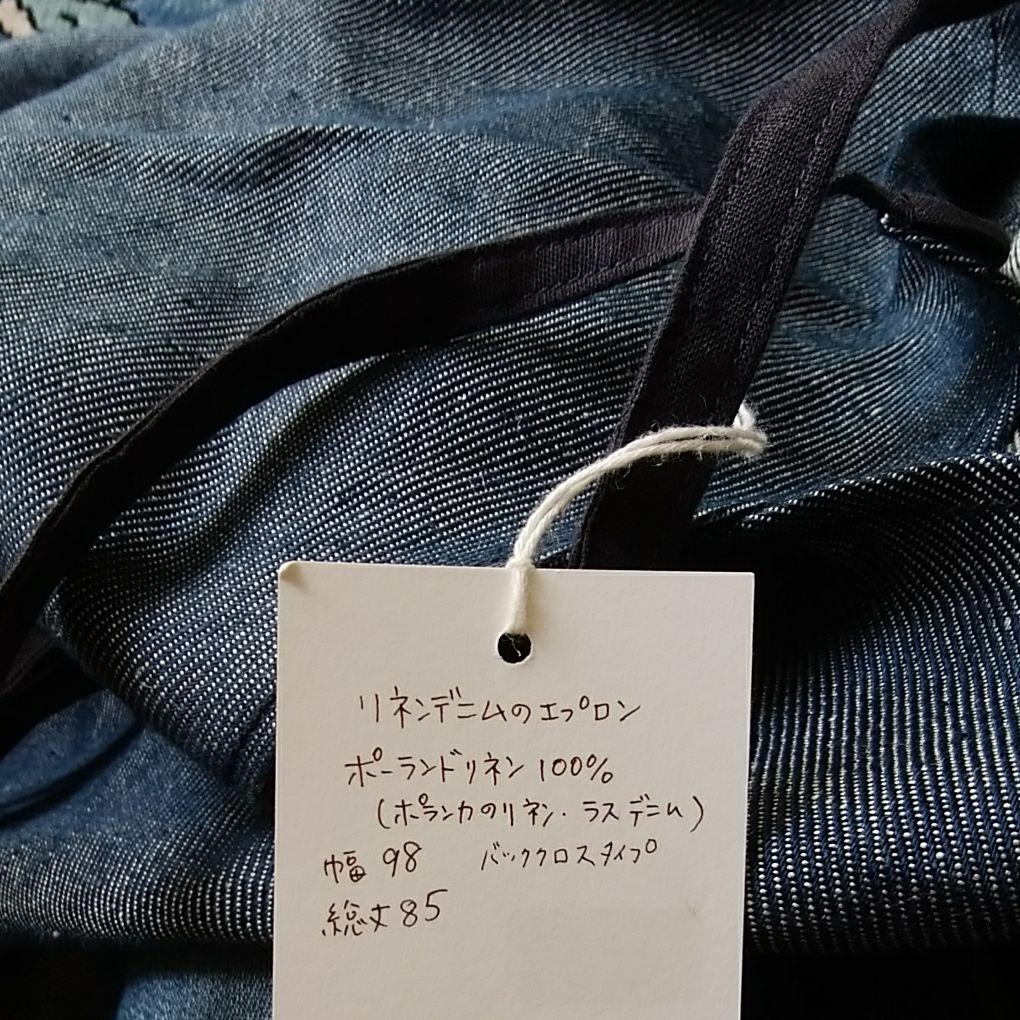 リネンデニムのエプロン
ポーランドリネン100%
(ポランカのリネン・ラスデニム)
幅 98 バッククロスタイプ
総丈85